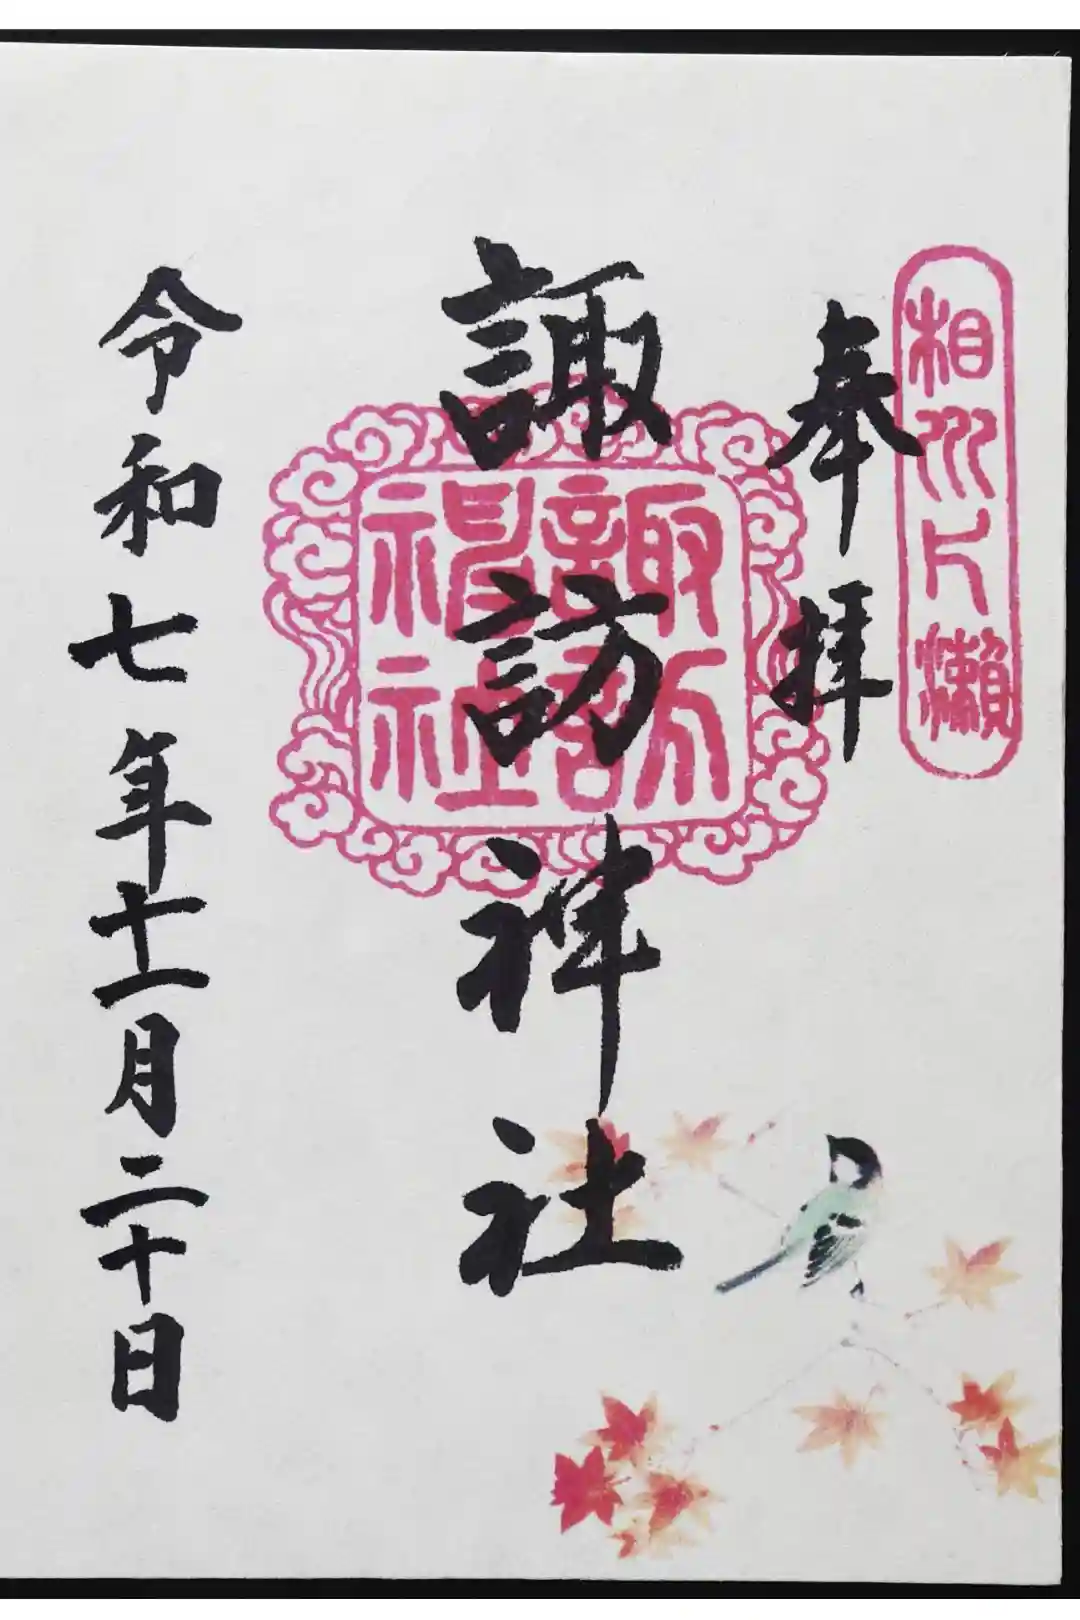 相州片瀬
奉拝
諏訪神社
諏訪
神社
令和七年十一月二十日